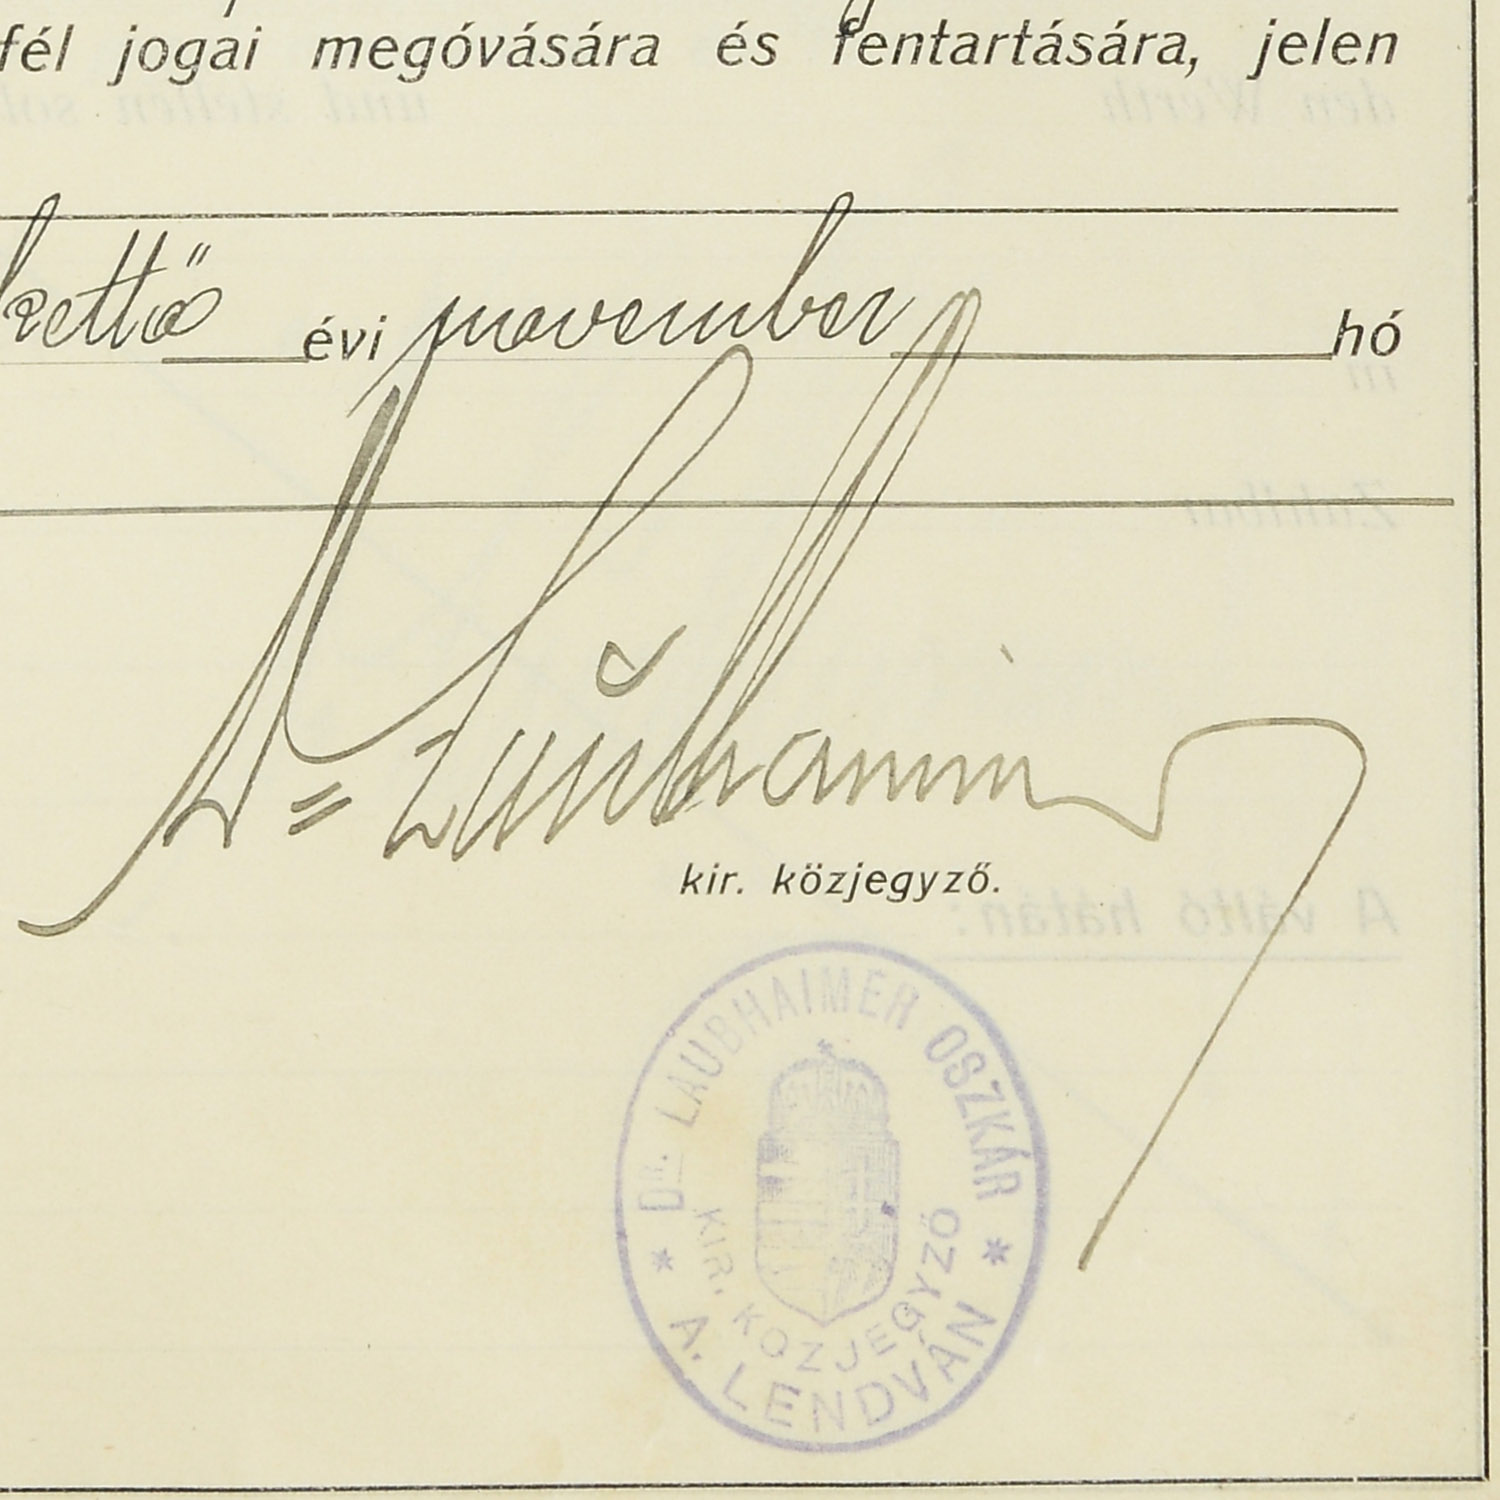 fél jogai megóvására és fentartására, jelen
kettő évi november hó
Dr Laubhaimer
kir. közjegyző.
DR. LAUBHAIMER OSZKÁR
KIR. KÖZJEGYZŐ
* A. LENDVÁN *
den Werth und stellen
in
Zahlbar
A váltó hátán: